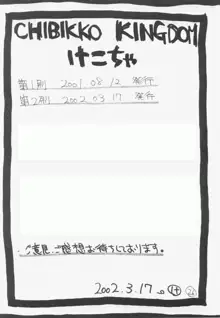 CHIBIKKO KINGDOM
けこちゃ
第1刷 2001.08.12 発行
第2刷 2002.03.17 発行
・ご意見、ご感想お待ちしております。
2002.3.17